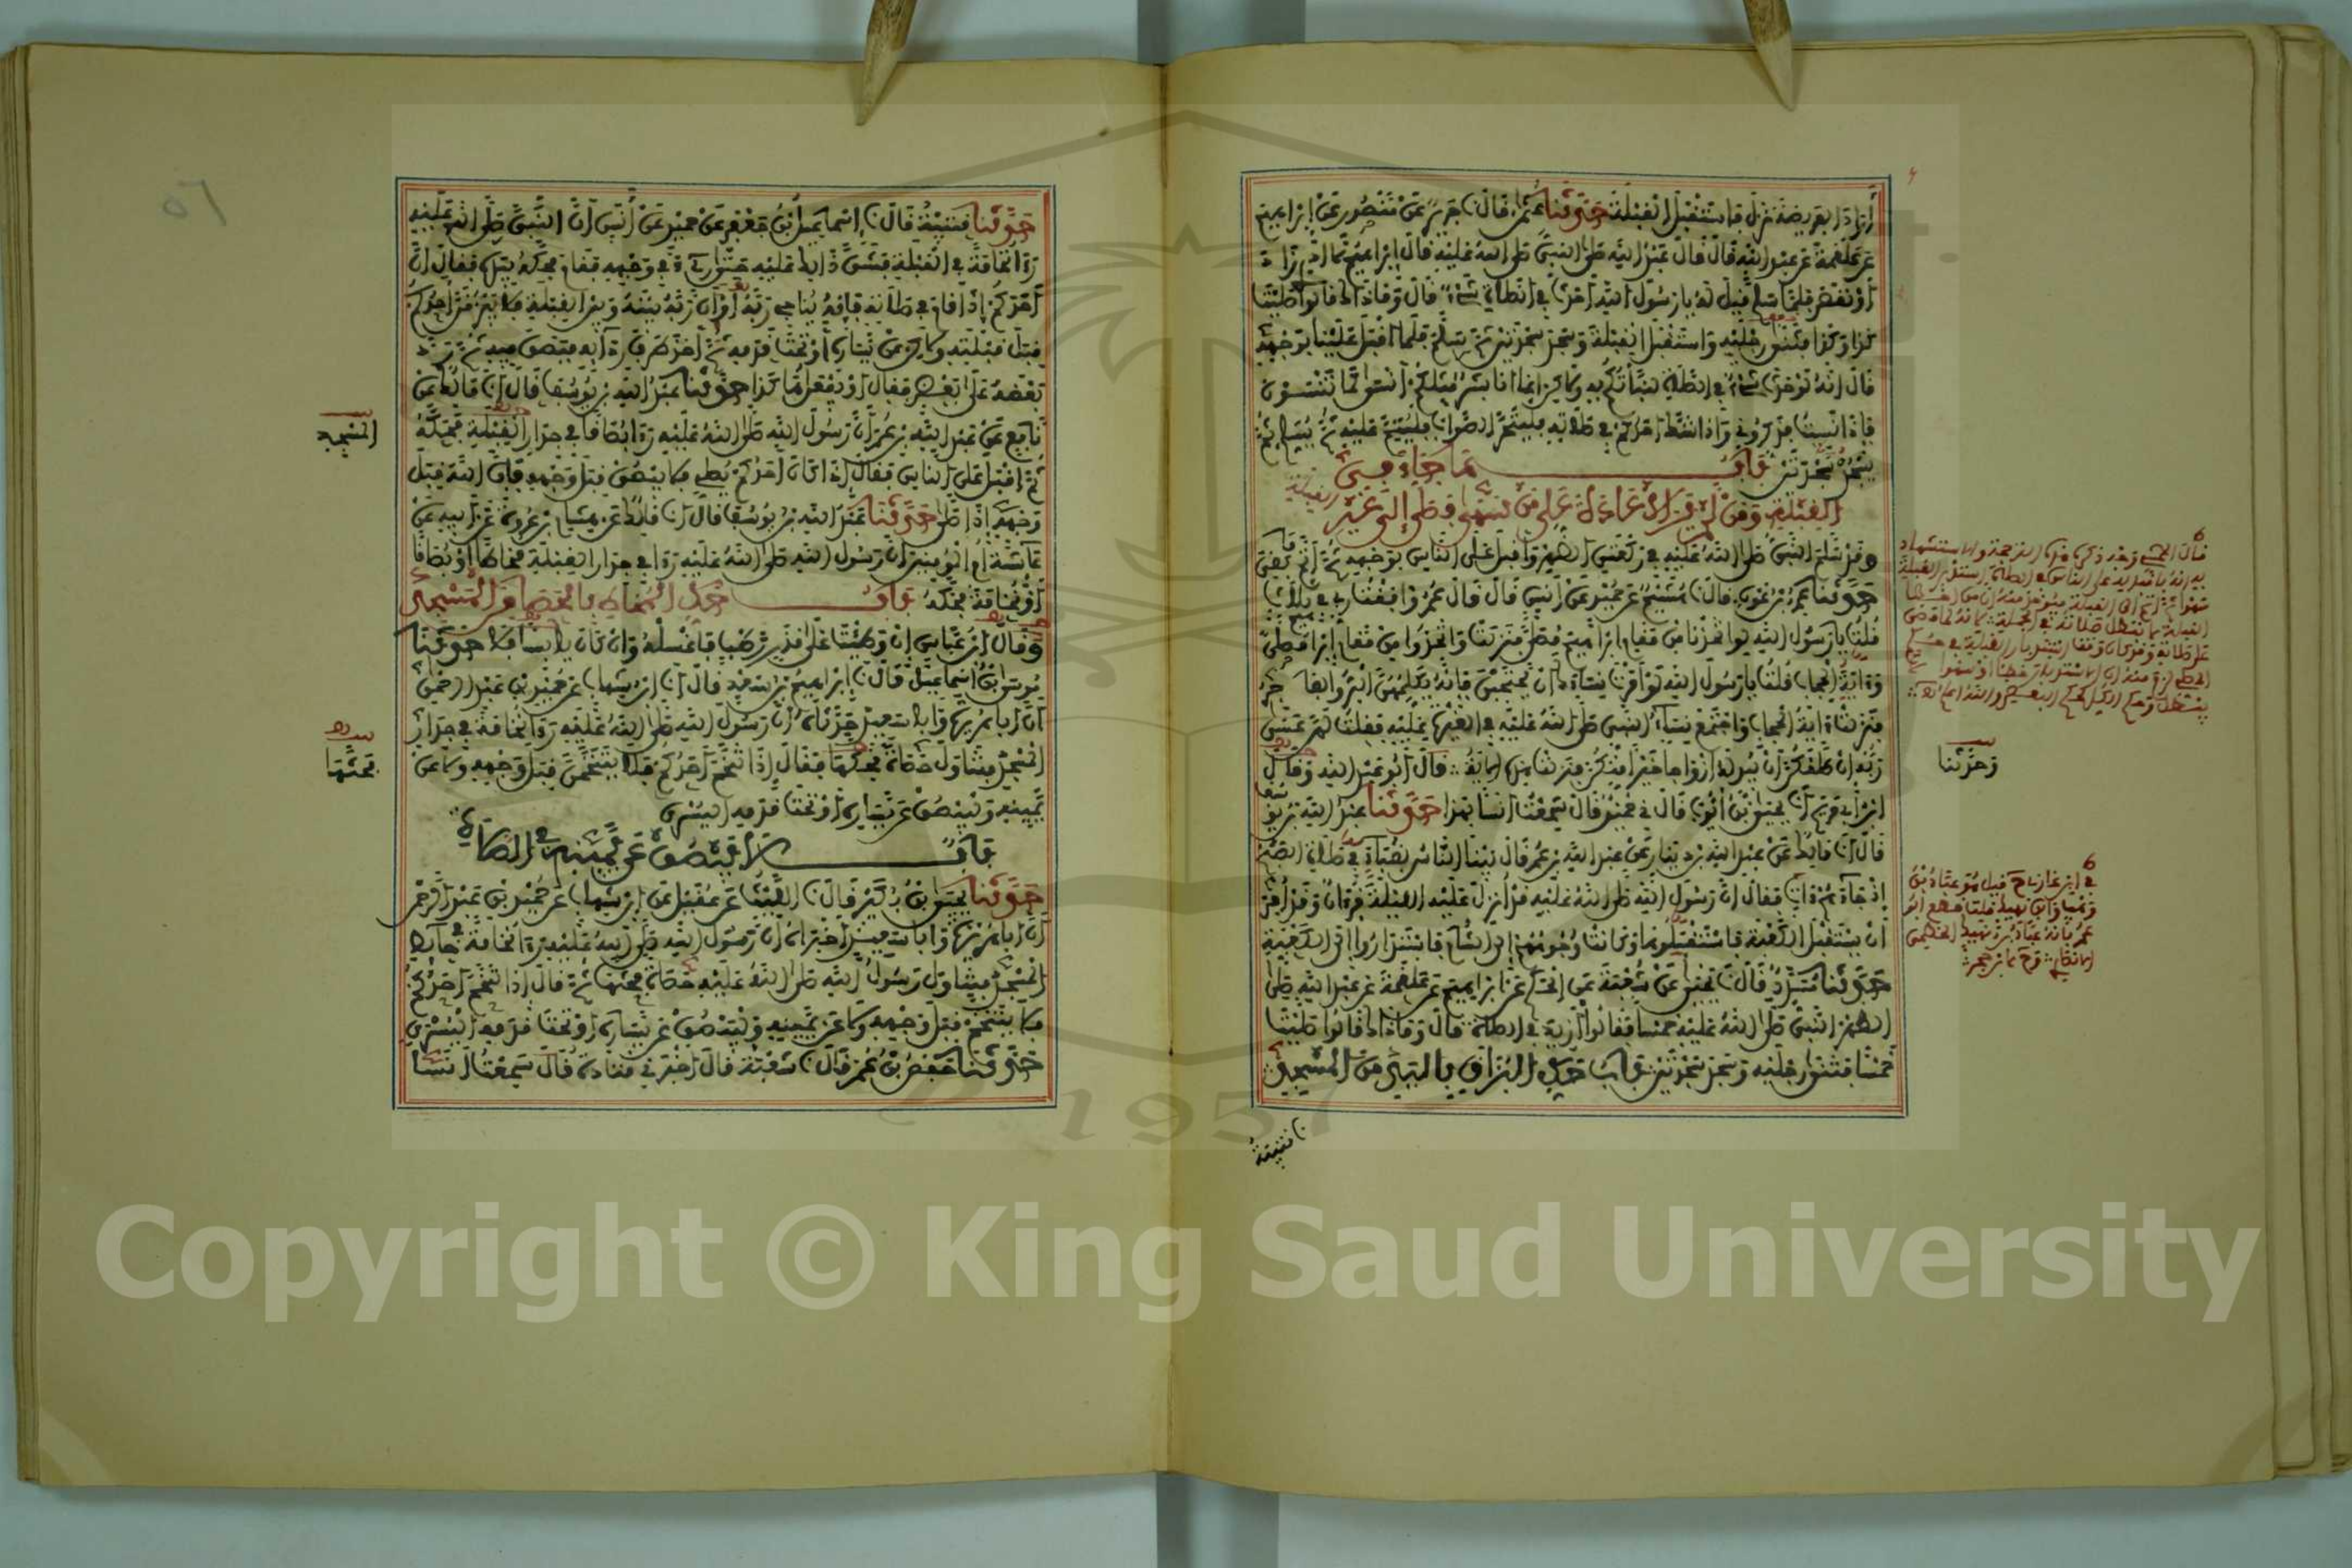 أراد الفريضة نزل فاستقبل القبلة حدثنا عثمن قال نا جرير عن منصور عن إبراهيم
عن علقمة عن عبد الله قال قال عبد الله صلى النبي صلى الله عليه قال إبراهيم لا أدري زاد
أو نقص فلما سلم قيل له يا رسول الله أحدث في الصلاة شيء قال وما ذاك قالوا صليت
كذا وكذا فثنى رجليه واستقبل القبلة وسجد سجدتين ثم سلم فلما أقبل علينا بوجهه
قال إنه لو حدث شيء في الصلاة لنبأتكم به ولكن إنما أنا بشر مثلكم أنسى كما تنسون
فإذا نسيت فذكروني وإذا شك أحدكم في صلاته فليتحر الصواب فليتم عليه ثم يسلم ثم
يسجد سجدتين باب ما جاء في
القبلة ومن لم ير الإعادة على من سها فصلى إلى غير القبلة
وقد سلم النبي صلى الله عليه في ركعتي الظهر وأقبل على الناس بوجهه ثم أتم ما بقي
حدثنا عمرو بن عون قال نا هشيم عن حميد عن أنس قال قال عمر وافقت ربي في ثلاث
قلت يا رسول الله لو اتخذنا من مقام إبراهيم مصلى فنزلت واتخذوا من مقام إبراهيم مصلى
وءاية الحجاب قلت يا رسول الله لو أمرت نساءك أن يحتجبن فإنه يكلمهن البر والفاجر
فنزلت ءاية الحجاب واجتمع نساء النبي صلى الله عليه في الغيرة عليه فقلت لهن عسى
ربه إن طلقكن أن يبدله أزواجا خيرا منكن فنزلت هذه الآية قال أبو عبد الله وقال
ابن أبي مريم أنا يحيى بن أيوب قال ني حميد قال سمعت أنسا بهذا حدثنا عبد الله بن يوسف
قال أنا مالك عن عبد الله بن دينار عن عبد الله بن عمر قال بينا الناس بقباء في صلاة الصبح
إذ جاءهم ءات فقال إن رسول الله صلى الله عليه قد أنزل عليه الليلة قرءان وقد أمر
أن يستقبل الكعبة فاستقبلوها وكانت وجوههم إلى الشام فاستداروا إلى الكعبة
حدثنا مسدد قال نا يحيى عن شعبة عن الحكم عن إبراهيم عن علقمة عن عبد الله صلى
الظهر النبي صلى الله عليه خمسا فقالوا أزيد في الصلاة قال وما ذاك قالوا صليت
خمسا فثنى رجليه وسجد سجدتين باب حك البزاق باليد من المسجد
نا قتيبة
وحدثنا
حدثنا قتيبة قال نا إسماعيل بن جعفر عن حميد عن أنس أن النبي صلى الله عليه
رءا نخامة في القبلة فشق ذلك عليه حتى رءي في وجهه فقام فحكه بيده فقال إن
أحدكم إذا قام في صلاته فإنه يناجي ربه أو إن ربه بينه وبين القبلة فلا يبزقن أحدكم
قبل قبلته ولكن عن يساره أو تحت قدمه ثم أخذ طرف ردائه فبصق فيه ثم رد
بعضه على بعض فقال أو يفعل هكذا حدثنا عبد الله بن يوسف قال أنا مالك عن
نافع عن عبد الله بن عمر أن رسول الله صلى الله عليه رءا بصاقا في جدار القبلة فحكه
ثم أقبل على الناس فقال إذا كان أحدكم يصلي فلا يبصق قبل وجهه فإن الله قبل
وجهه إذا صلى حدثنا عبد الله بن يوسف قال أنا مالك عن هشام بن عروة عن أبيه عن
عائشة أم المومنين أن رسول الله صلى الله عليه رءا في جدار القبلة مخاطا أو بصاقا
أو نخامة فحكه باب حك المخاط بالحصا من المسجد
وقال ابن عباس إن وطئت على قذر رطب فاغسله وإن كان يابسا فلا حدثنا
موسى بن إسماعيل قال نا إبراهيم بن سعد قال أنا ابن شهاب عن حميد بن عبد الرحمن
أن أبا هريرة وأبا سعيد حدثاه أن رسول الله صلى الله عليه رءا نخامة في جدار
المسجد فتناول حصاة فحكها فقال إذا تنخم أحدكم فلا يتنخمن قبل وجهه ولا عن
يمينه وليبصق عن يساره أو تحت قدمه اليسرى
باب لا يبصق عن يمينه في الصلاة
حدثنا يحيى بن بكير قال نا الليث عن عقيل عن ابن شهاب عن حميد بن عبد الرحمن
أن أبا هريرة وأبا سعيد أخبراه أن رسول الله صلى الله عليه رءا نخامة في حائط
المسجد فتناول رسول الله صلى الله عليه حصاة فحتها ثم قال إذا تنخم أحدكم
فلا يتنخم قبل وجهه ولا عن يمينه وليبصق عن يساره أو تحت قدمه اليسرى
حدثنا حفص بن عمر قال نا شعبة قال أخبرني قتادة قال سمعت أنسا
المسجد
فحتها
٥٦
Copyright © King Saud University
1957